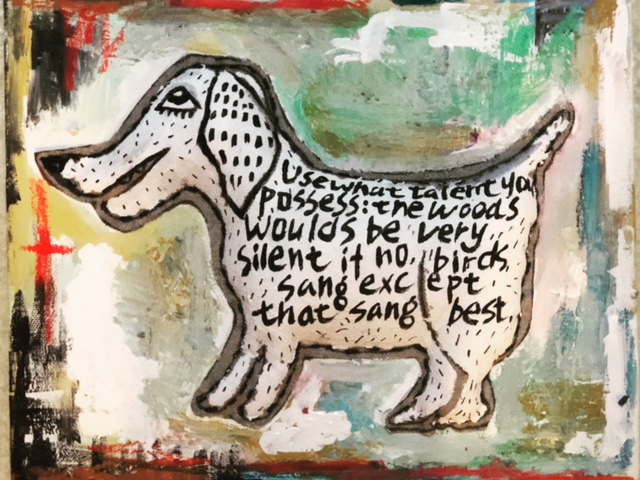 Use what talent you
possess: the woods
would be very
silent if no birds
sang except
that sang best.